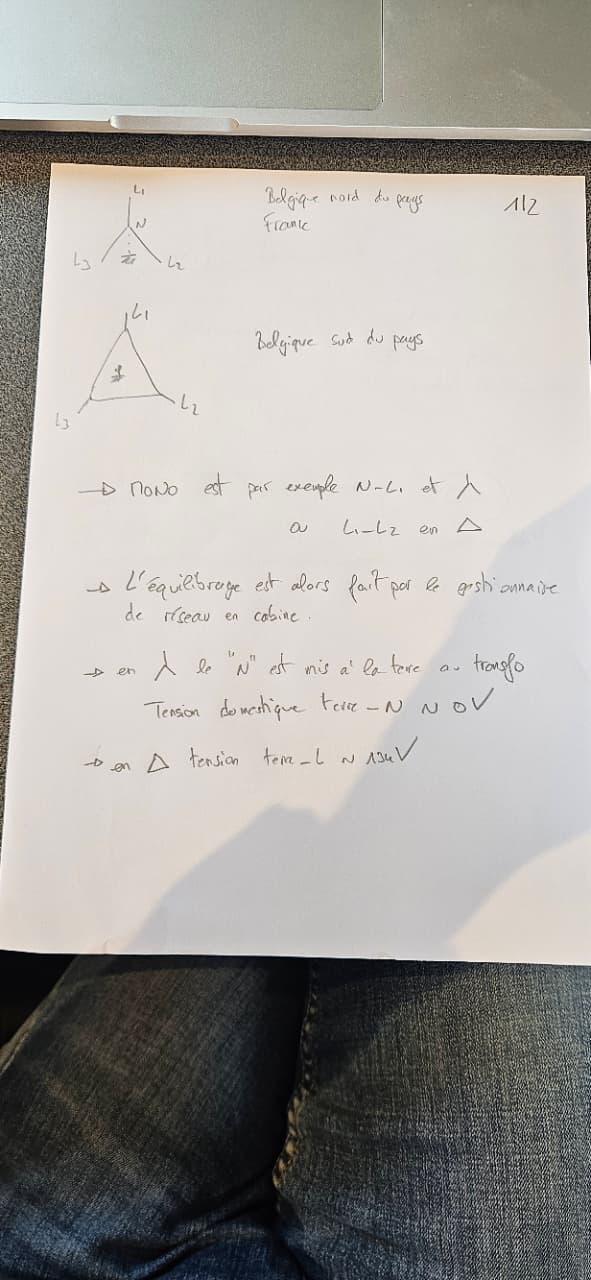 L1
N
L3
L2
Belgique nord du pays
France
1/2
L1
L3
L2
Belgique sud du pays
→ MONO est par exemple N-L1 et ⅄
ou L1-L2 en Δ
→ L'équilibrage est alors fait par le gestionnaire
de réseau en cabine.
→ en ⅄ le "N" est mis à la terre au transfo
Tension domestique terre - N ~ 0V
→ en Δ tension terre - L ~ 134V